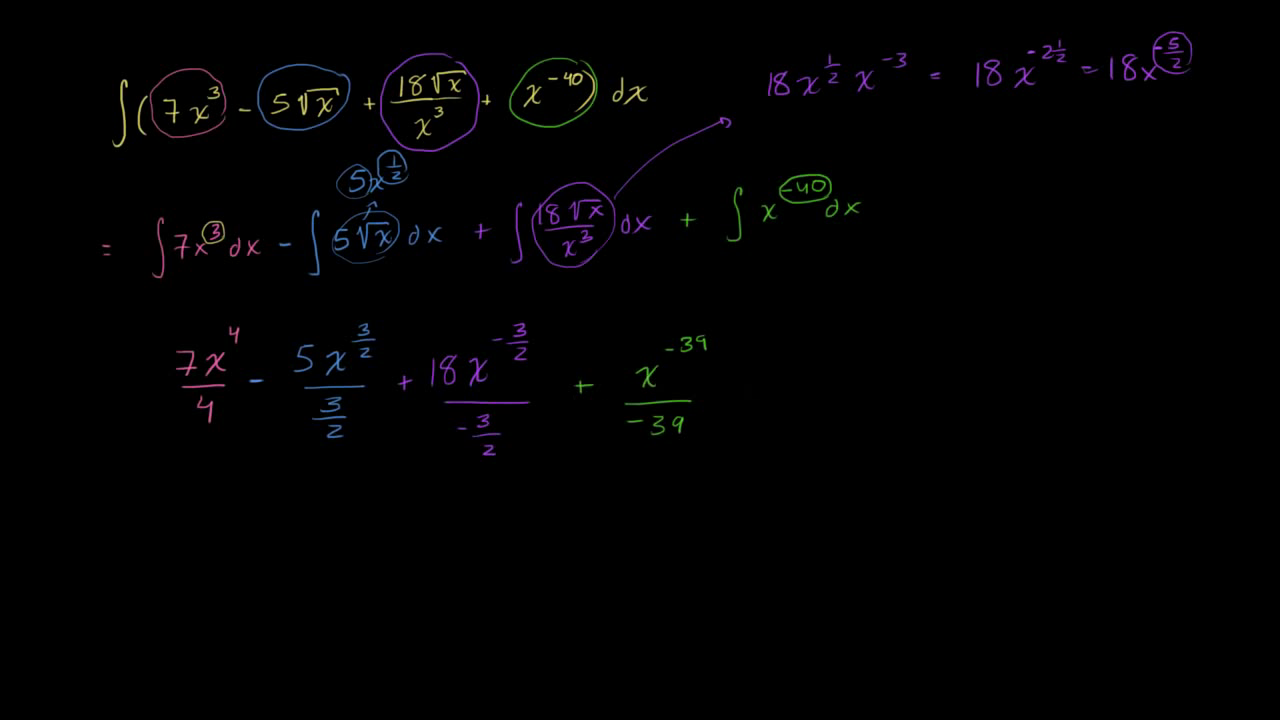 ∫(7x³ - 5√x + 18√x/x³ + x⁻⁴⁰) dx
18x^(1/2) x⁻³ = 18x^(-2 1/2) = 18x^(-5/2)
5x^(1/2)
= ∫7x³dx - ∫5√x dx + ∫18√x/x³ dx + ∫x⁻⁴⁰dx
7x⁴/4 - 5x^(3/2)/(3/2) + 18x^(-3/2)/(-3/2) + x⁻³⁹/-39